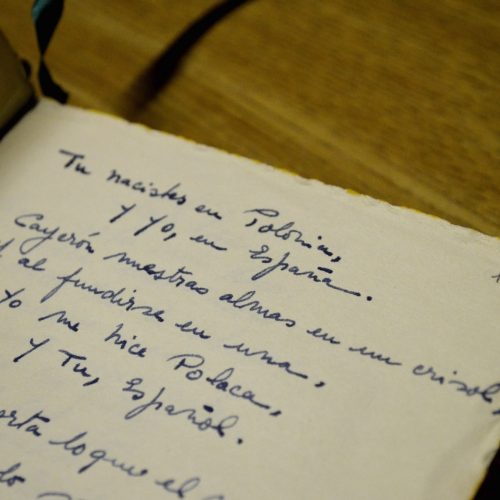 Tu nacistes en Polonia,
y yo, en España.
Cayerón nuestras almas en un crisol,
al fundirse en una,
Yo me hice Polaca,
Y Tu, Español.
loque el